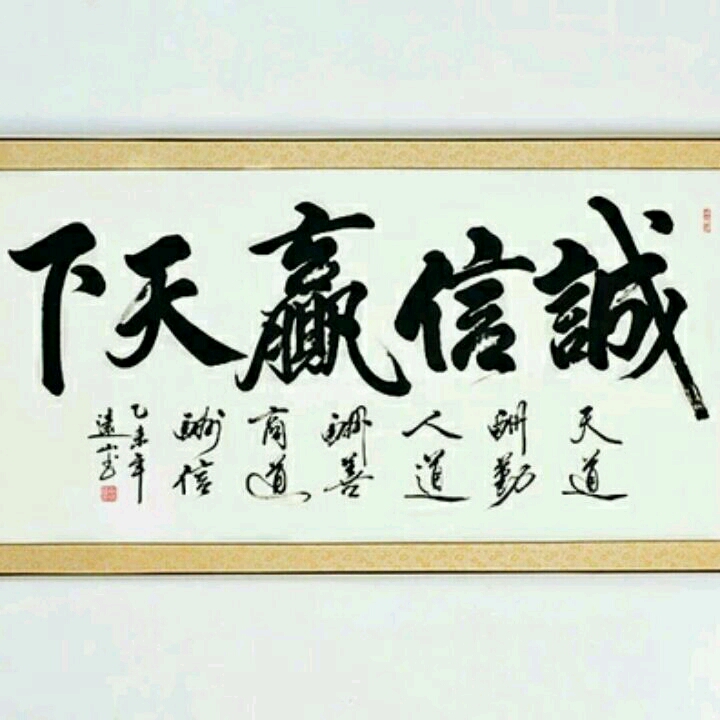 誠信贏天下
天道
酬勤
人道
酬善
商道
酬信
乙未年
遠山書